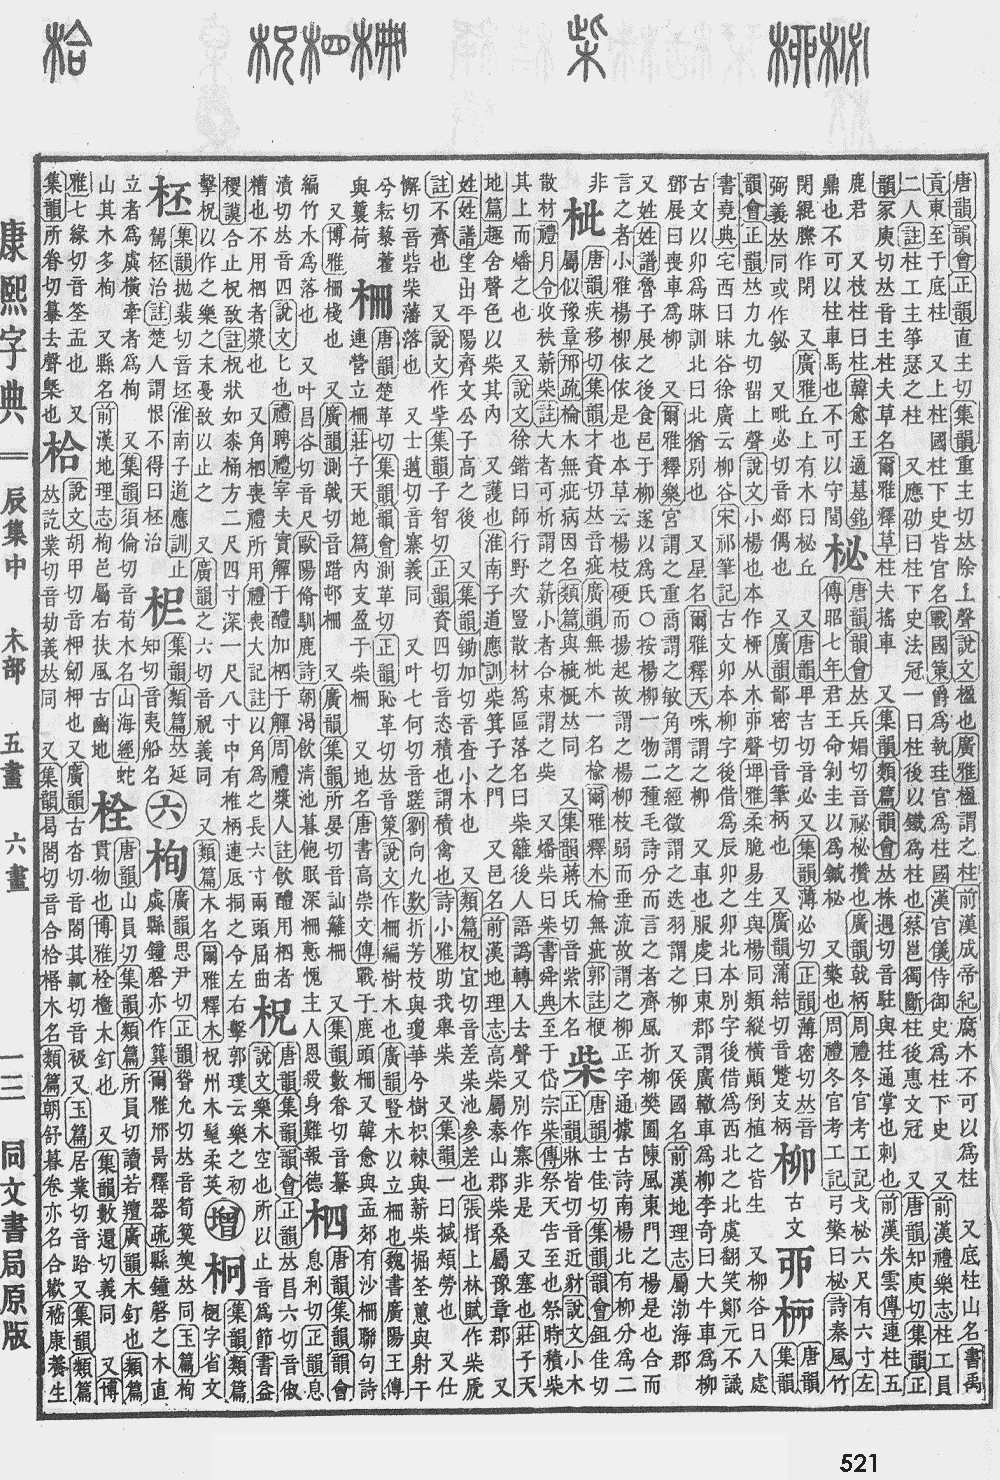 唐韻韻會正韻直主切集韻重主切𠀤除上聲說文楹也廣雅楹謂之柱前漢成帝紀腐木不可以爲柱　又底柱山名書禹
貢東至于底柱　又上柱國柱下史皆官名戰國策爵爲執珪官爲柱國漢官儀侍御史爲柱下史　又前漢禮樂志柱工員
二人註柱工主箏瑟之柱　又應劭曰柱下史法冠一曰柱後以鐵爲柱也蔡邕獨斷柱後惠文冠　又唐韻知庾切集韻正
韻冢庾切𠀤音主柱夫草名爾雅釋草柱夫搖車　又集韻類篇韻會𠀤株遇切音駐與拄通掌也刺也前漢朱雲傳連柱五
鹿君　又枝柱曰柱韓愈王適墓銘
鼎也不可以柱車馬也不可以守閭
柲
唐韻韻會𠀤兵媚切音祕柲攢也廣韻戟柄周禮冬官考工記戈柲六尺有六寸左
傳昭七年君王命剝圭以爲鏚柲　又檠也周禮冬官考工記弓檠曰柲詩秦風竹
閉緄縢作閉　又廣雅丘上有木曰柲丘　又唐韻毘吉切音必又集韻薄必切正韻薄密切𠀤音
弼義𠀤同或作㧙　又毗必切音邲偶也　又廣韻鄙密切音筆柄也　又廣韻蒲結切音蹩支柄
柳
古文
丣桺
唐韻集韻
韻會正韻𠀤力九切留上聲說文小楊也本作桺从木丣聲埤雅柔脆易生與楊同類縱橫顚倒植之皆生　又柳谷日入處
書堯典宅西曰昧谷徐廣云柳谷宋祁筆記古文卯本柳字後借爲辰卯之卯北本別字後借爲西北之北虞翻笑鄭元不識
古文以卯爲昧訓北曰北猶別也　又星名爾雅釋天咮謂之柳　又車也服虔曰東郡謂廣轍車爲柳李奇曰大牛車爲柳
鄧展曰喪車爲柳　又爾雅釋樂宮謂之重商謂之敏角謂之經徵謂之迭羽謂之柳　又侯國名前漢地理志屬渤海郡
又姓姓譜魯子展之後食邑于柳遂以爲氏○按楊柳一物二種毛詩分而言之者齊風折柳樊圃陳風東門之楊是也合而
言之者小雅楊柳依依是也本草云楊枝硬而揚起故謂之楊柳枝弱而垂流故謂之柳正字通據古詩南楊北有柳分爲二
非
枇
唐韻疾移切集韻才資切𠀤音疵廣韻無枇木一名楡爾雅釋木棆無疵郭註楩
屬似豫章邢疏棆木無疵病因名類篇與㮰概𠀤同　又集韻蔣氏切音紫木名
柴
唐韻士佳切集韻韻會鉏佳切
正韻牀皆切音近豺說文小木
散材禮月令收秩薪柴註大者可析謂之薪小者合束謂之柴　又燔柴曰柴書舜典至于岱宗柴傳祭天告至也祭時積柴
其上而燔之也　又說文徐鍇曰師行野次豎散材爲區落名曰柴籬後人語譌轉入去聲又別作寨非是　又塞也莊子天
地篇趣舍聲色以柴其內　又護也淮南子道應訓柴箕子之門　又邑名前漢地理志高柴屬泰山郡柴桑屬豫章郡　又
姓姓譜望出平陽齊文公子高之後　又集韻鋤加切音查小木也　又類篇權宜切音差柴池參差也張揖上林賦作柴虒
註不齊也　又說文作㧘集韻子智切正韻資四切音恣積也謂積禽也詩小雅助我舉柴　又集韻一曰搣頰勞也　又仕
懈切音砦柴藩落也　又士邁切音寨義同　又叶七何切音蹉劉向九歎折芳枝與瓊華兮樹枳棘與新柴掘荃蕙與射干
兮耘藜藿
與蘘荷
柵
唐韻楚革切集韻韻會測革切正韻恥革切𠀤音策說文編樹木也廣韻豎木以立柵也魏書廣陽王傳
連營立柵莊子天地篇內內支盈于柴柵　又地名唐書高崇文傳戰于鹿頭柵又韓愈與孟郊有沙柵聯句詩
又博雅柵棧也　又廣韻測戟切音䟆邨柵　又廣韻集韻所晏切音訕籬柵　又集韻數眷切音㝈
編竹木爲落也　又叶昌谷切音尺歐陽脩馴鹿詩朝渴飲清池暮飽眠深柵慙愧主人恩殺身難報德
柶
唐韻集韻韻會
息利切正韻息
漬切𠀤音四說文匕也禮聘禮宰夫實觶于醴加柶于觶周禮漿人註飲醴用柶者
糟也不用柶者漿也　又角柶喪禮所用禮喪大記註以角爲之長六寸兩頭屈曲
柷
唐韻集韻韻會正韻𠀤昌六切音俶
說文樂木空也所以止音爲節書益
稷謨合止柷敔註柷狀如桼桶方二尺四寸深一尺八寸中有椎柄連底挏之令左右擊郭璞云樂之初
擊柷以作之樂之末戛敔以止之　又廣韻之六切音祝義同　又類篇木名爾雅釋木柷州木髦柔英
增
柌
集韻類篇
棩字省文
柸
集韻拋裴切音坯淮南子道應訓止
駕柸治註楚人謂恨不得曰柸治
柂
集韻類篇𠀤延
知切音夷船名
六
栒
廣韻思尹切正韻聳允切𠀤音筍㔼㯛𠀤同玉篇栒
虡縣鐘磬亦作簨爾雅邢昺釋器疏縣鐘磬之木直
立者爲虡橫牽者爲栒　又集韻須倫切音荀木名山海經蛇
山其木多栒　又縣名前漢地理志栒邑屬右扶風古豳地
栓
唐韻山員切集韻類篇所員切讀若羶廣韻木釘也類篇
貫物也博雅栓櫃木釘也　又集韻數還切義同　又博
雅七緣切音筌盂也　又
集韻所眷切𡩋去聲㮂也
枱
說文胡甲切音柙劒柙也又廣韻古沓切音閤其輒切音极又玉篇居業切音跲又集韻類篇
𠀤訖業切音劫義𠀤同　又集韻曷閤切音合枱㮈木名類篇朝舒暮卷亦名合歡嵇康養生
康熙字典
辰集中　木部　五畫　六畫
一三
同文書局原版
521